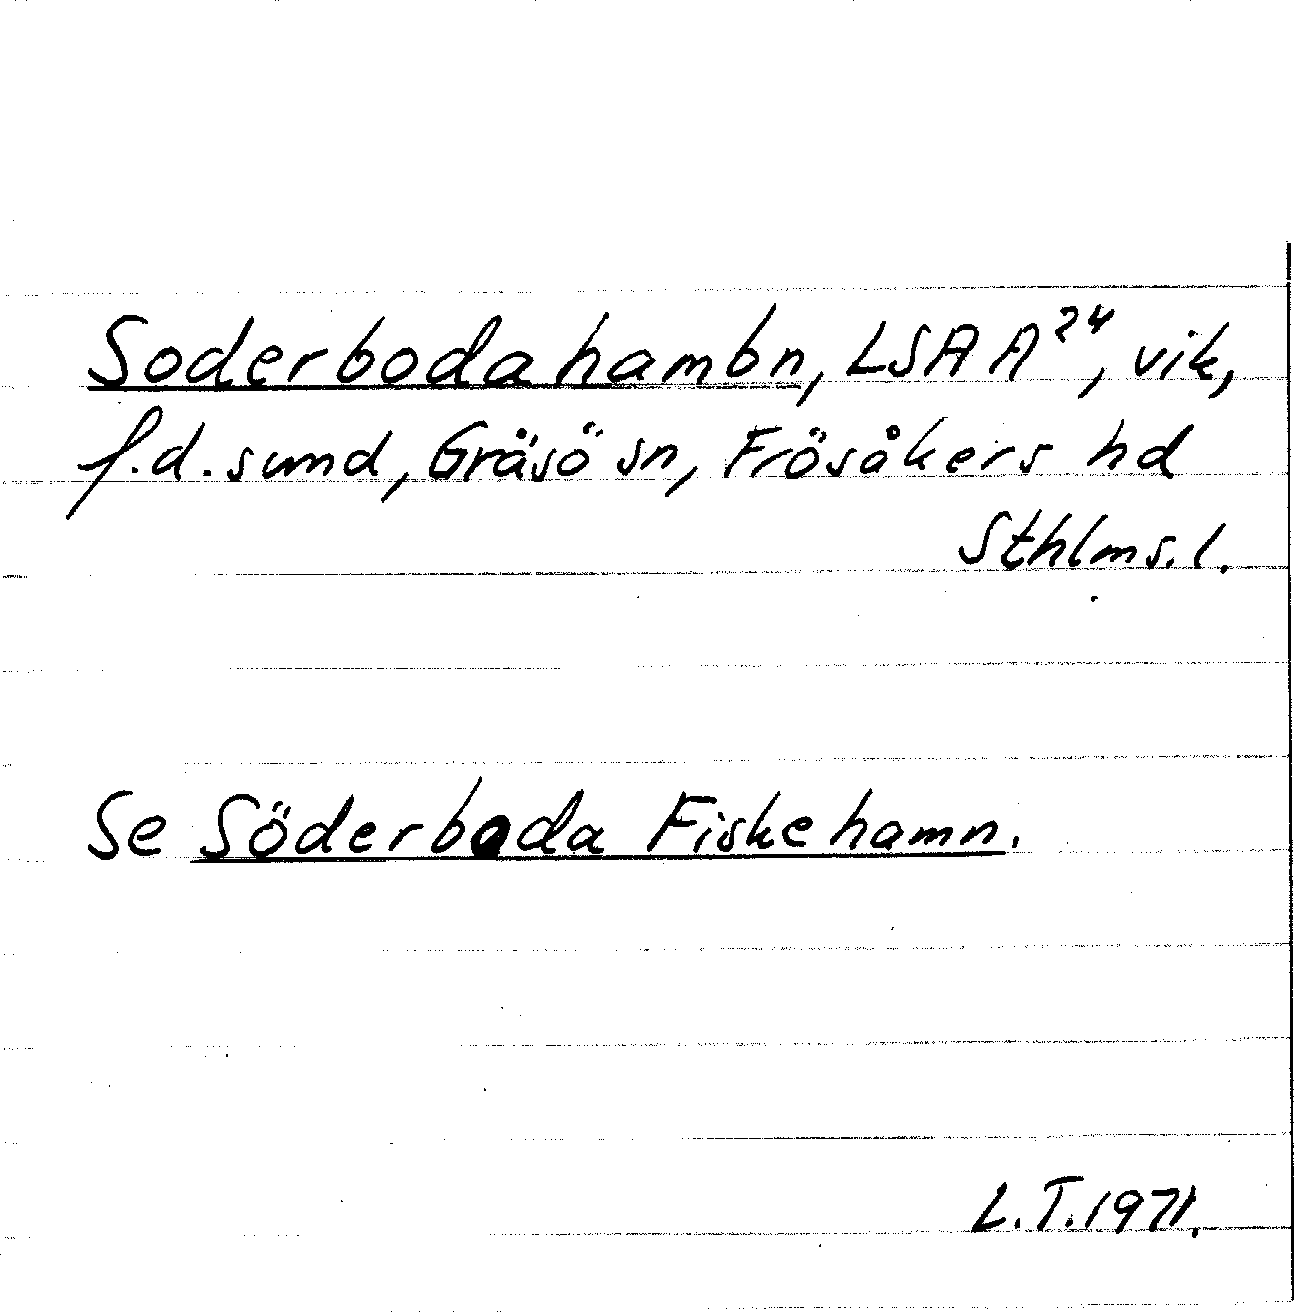 Soderboda hambn, LSA A²⁴, vik,
f.d. sund, Gräsö sn, Frösåkers hd
Sthlms. l.
Se Söderboda Fiskehamn.
L.T. 1971.